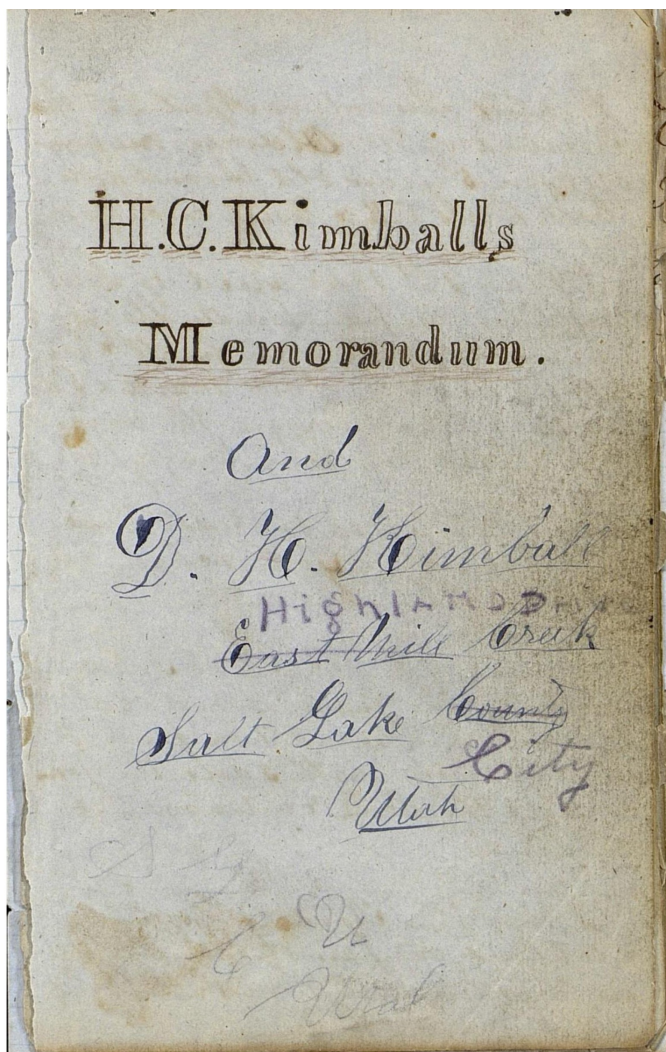 H.C. Kimballs
Memorandum.
And
D. H. Kimball
Highland Drive
East Mill Creek
Salt Lake County
City
Utah
S L
C U